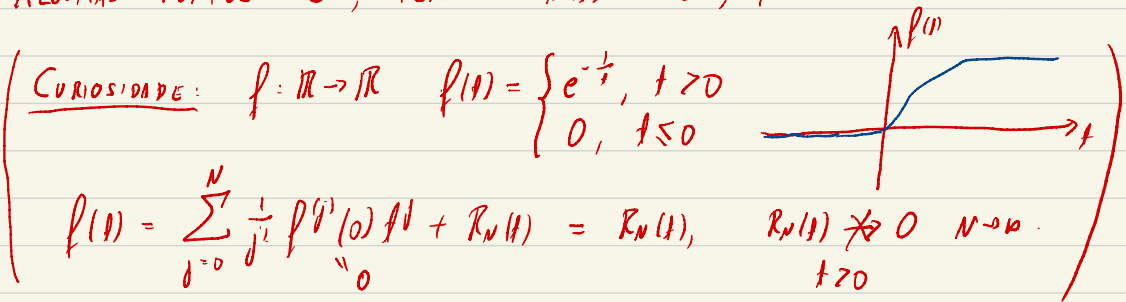 f(t)
CURIOSIDADE: f: ℝ → ℝ f(t) = { e^{-1/t}, t > 0
0, t ≤ 0
t
f(t) = \sum_{j=0}^{N} \frac{1}{j!} f^{(j)}(0) t^j + R_N(t) = R_N(t), R_N(t) ↛ 0 N→∞.
"0 t>0